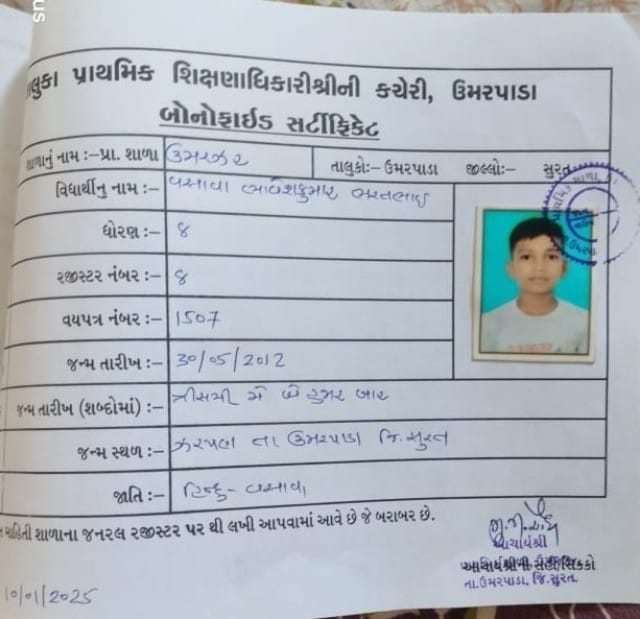 તાલુકા પ્રાથમિક શિક્ષણાધિકારીશ્રીની કચેરી, ઉમરપાડા
બોનોફાઇડ સર્ટીફિકેટ
શાળાનું નામ :– પ્રા. શાળા ઉમરઝર તાલુકો:– ઉમરપાડા જીલ્લો:– સુરત
વિદ્યાર્થીનુ નામ :– વસાવા ભાવેશકુમાર ભરતભાઇ
ધોરણ :– ૪
રજીસ્ટર નંબર :– ૪
વયપત્ર નંબર :– 1507
જન્મ તારીખ :– 30/05/2012
જન્મ તારીખ (શબ્દોમાં) :– ત્રીસમી મે બે હજાર બાર
જન્મ સ્થળ :– ઝરપણ તા ઉમરપાડા જિ. સુરત
જાતિ :– હિન્દુ - વસાવા
માહિતી શાળાના જનરલ રજીસ્ટર પર થી લખી આપવામાં આવે છે જે બરાબર છે.
આચાર્યશ્રી
આચાર્યશ્રીની સહી/સિક્કો
તા. ઉમરપાડા, જિ. સુરત.
10/01/2025